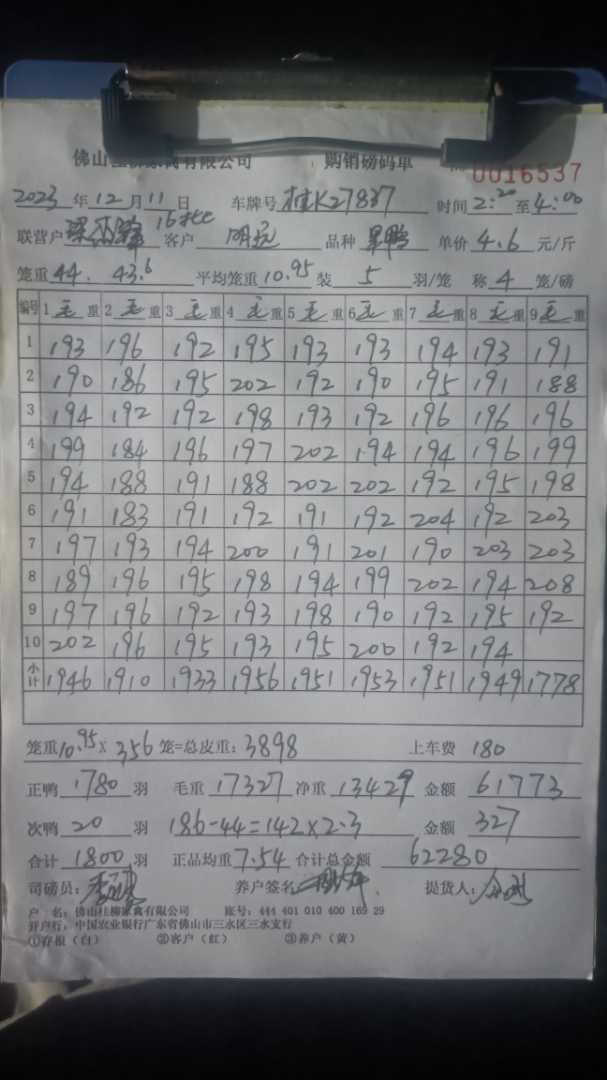 佛山桂柳家禽有限公司 购销磅码单 0016537
2023年12月11日 车牌号 桂K27837 时间2:20至4:00
联营户 16批 客户 明记 品种 单价4.6元/斤
笼重44. 43.6 平均笼重10.95装 5 羽/笼 称4笼/磅
编号 1毛重 2毛重 3毛重 4毛重 5毛重 6毛重 7毛重 8毛重 9毛重
1 193 196 192 195 193 193 194 193 191
2 190 186 195 202 192 190 195 191 188
3 194 192 192 198 193 192 196 196 196
4 199 184 196 197 202 194 194 196 199
5 194 188 191 188 202 202 192 195 198
6 191 183 191 192 191 192 204 192 203
7 197 193 194 200 191 201 190 203 203
8 189 196 195 198 194 199 202 194 208
9 197 196 192 193 198 190 192 195 192
10 202 196 195 193 195 200 192 194
小计 1946 1910 1933 1956 1951 1953 1951 1949 1778
笼重10.95X 356 笼=总皮重:3898 上车费 180
正鸭 1780 羽 毛重 17327 净重 13429 金额 61773
次鸭 20 羽 186-44=142×2.3 金额 327
合计 1800 羽 正品均重7.54 合计总金额 62280
司磅员: 养户签名 提货人:
户 名:佛山桂柳家禽有限公司 账号:444 401 010 400 169 29
开户行:中国农业银行广东省佛山市三水区三水支行
①存根(白) ②客户(红) ③养户(黄)